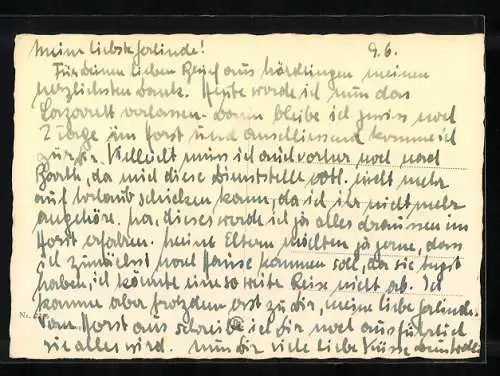 Meine liebste Gerlinde! 9.6.
Für Deinen lieben Brief aus Nördlingen meinen
herzlichsten Dank. Heute werde ich nun das
Lazarett verlassen. Dann bleibe ich gewiss noch
2 Tage im Horst und anschliessend komme ich
zu Dir. Vielleicht muss ich auch vorher noch nach
Barth, da mich diese Dienststelle evtl. nicht mehr
auf Urlaub schicken kann, da ich ihr nicht mehr
angehöre. Na, dieses werde ich ja alles draussen im
Horst erfahren. Meine Eltern möchten ja gerne, dass
ich zunächst nach Hause kommen soll, da sie Angst
haben, ich könnte eine so weite Reise nicht ab. Ich
komme aber trotzdem erst zu Dir, meine liebe Gerlinde.
Vom Horst aus schreibe ich Dir noch ausführlich
wie alles wird. Nun Dir viele liebe Küsse